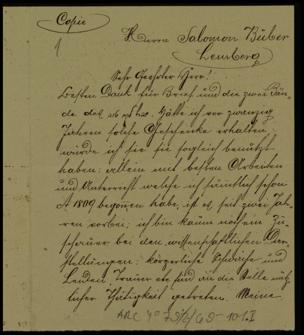 Copie
1
Herrn Salomon Buber
Lemberg
Sehr Geehrter Herr!
Besten Dank für Brief und die zwei Bän-
de des Hätte ich vor zwanzig
Jahren solche Geschenke erhalten,
würde ich sie sogleich benützt
haben; allein mit besten Arbeiten
und Unterricht welche ich schon
A 1809 begonnen habe, ist es, seit zwei Jah-
ren vorbei; ich bin kaum noch ein Zu-
schauer bei den wissenschaftlichen Dar-
stellungen: körperliche Schwäche und
Leiden, Trauer etc sind an die Stelle nütz-
licher Thätigkeit getreten. Meine
ARC 4°